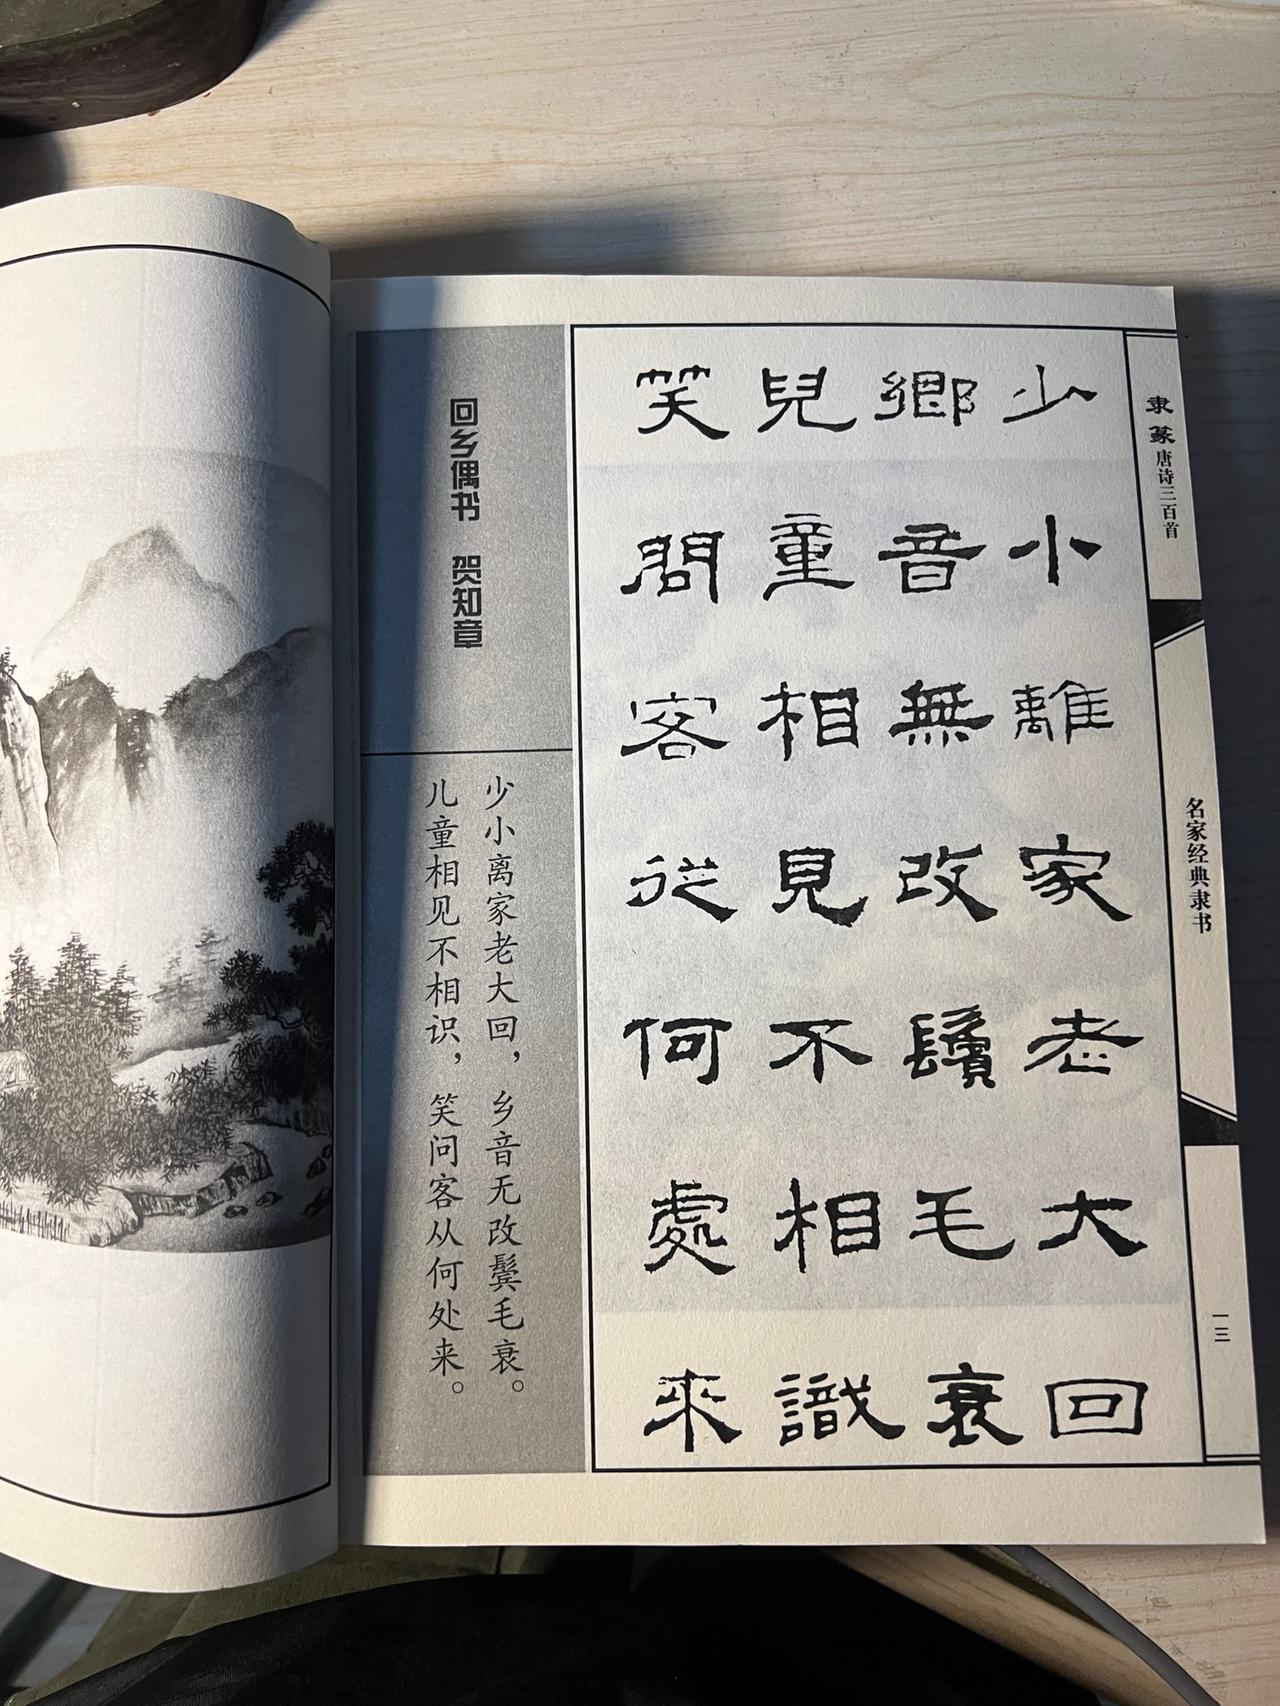 隶篆唐诗三百首
名家经典隶书
一三
少小離家老大回
鄉音無改鬢毛衰
兒童相見不相識
笑問客從何處來
回乡偶书 贺知章
少小离家老大回，乡音无改鬓毛衰。
儿童相见不相识，笑问客从何处来。